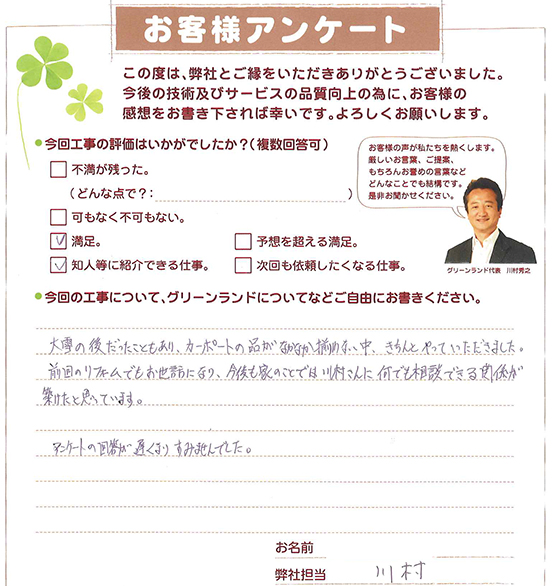 お客様アンケート
この度は、弊社とご縁をいただきありがとうございました。
今後の技術及びサービスの品質向上の為に、お客様の
感想をお書き下されば幸いです。よろしくお願いします。
●今回工事の評価はいかがでしたか?(複数回答可)
不満が残った。
(どんな点で?: )
可もなく不可もない。
満足。
予想を超える満足。
知人等に紹介できる仕事。
次回も依頼したくなる仕事。
お客様の声が私たちを熱くします。
厳しいお言葉、ご提案、
もちろんお誉めの言葉など
どんなことでも結構です。
是非お聞かせください。
グリーンランド代表 川村秀之
●今回の工事について、グリーンランドについてなどご自由にお書きください。
大雪の後だったこともあり、カーポートの品がなかなか揃わない中、きちんとやっていただきました。
前回のリフォームでもお世話になり、今後も家のことでは川村さんに何でも相談できる関係が
築けたと思っています。
アンケートの回答が遅くなりすみませんでした。
お名前
弊社担当 川村